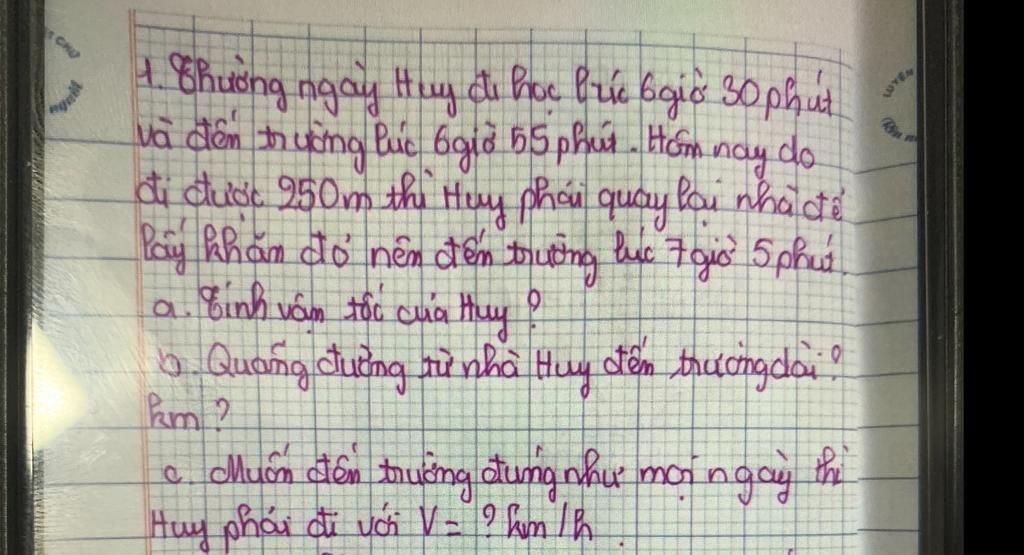 1. Thường ngày Huy đi học lúc 6 giờ 30 phút
và đến trường lúc 6 giờ 55 phút. Hôm nay do
đi được 250m thì Huy phải quay lại nhà để
lấy khăn đỏ nên đến trường lúc 7 giờ 5 phút.
a. Tính vận tốc của Huy?
b. Quãng đường từ nhà Huy đến trường dài ?
km ?
c. Muốn đến trường đúng như mọi ngày thì
Huy phải đi với V = ? km/h.